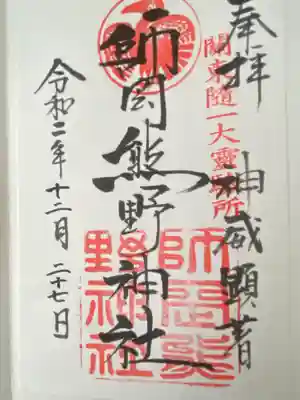 奉拝 神威顕著
關東随一大靈験所
師岡熊野神社
師岡熊
野神社
令和二年十二月二十七日